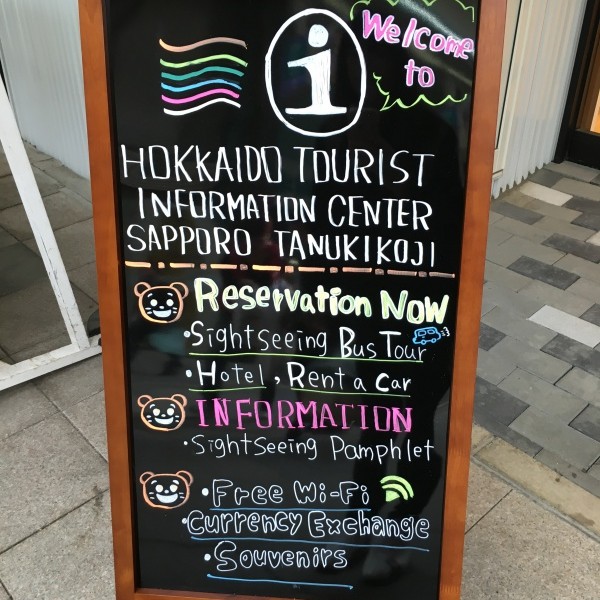 i
Welcome
to
HOKKAIDO TOURIST
INFORMATION CENTER
SAPPORO TANUKIKOJI
Reservation Now
・Sightseeing Bus Tour
・Hotel, Rent a Car
INFORMATION
・Sightseeing Pamphlet
・Free Wi-Fi
・Currency Exchange
・Souvenirs